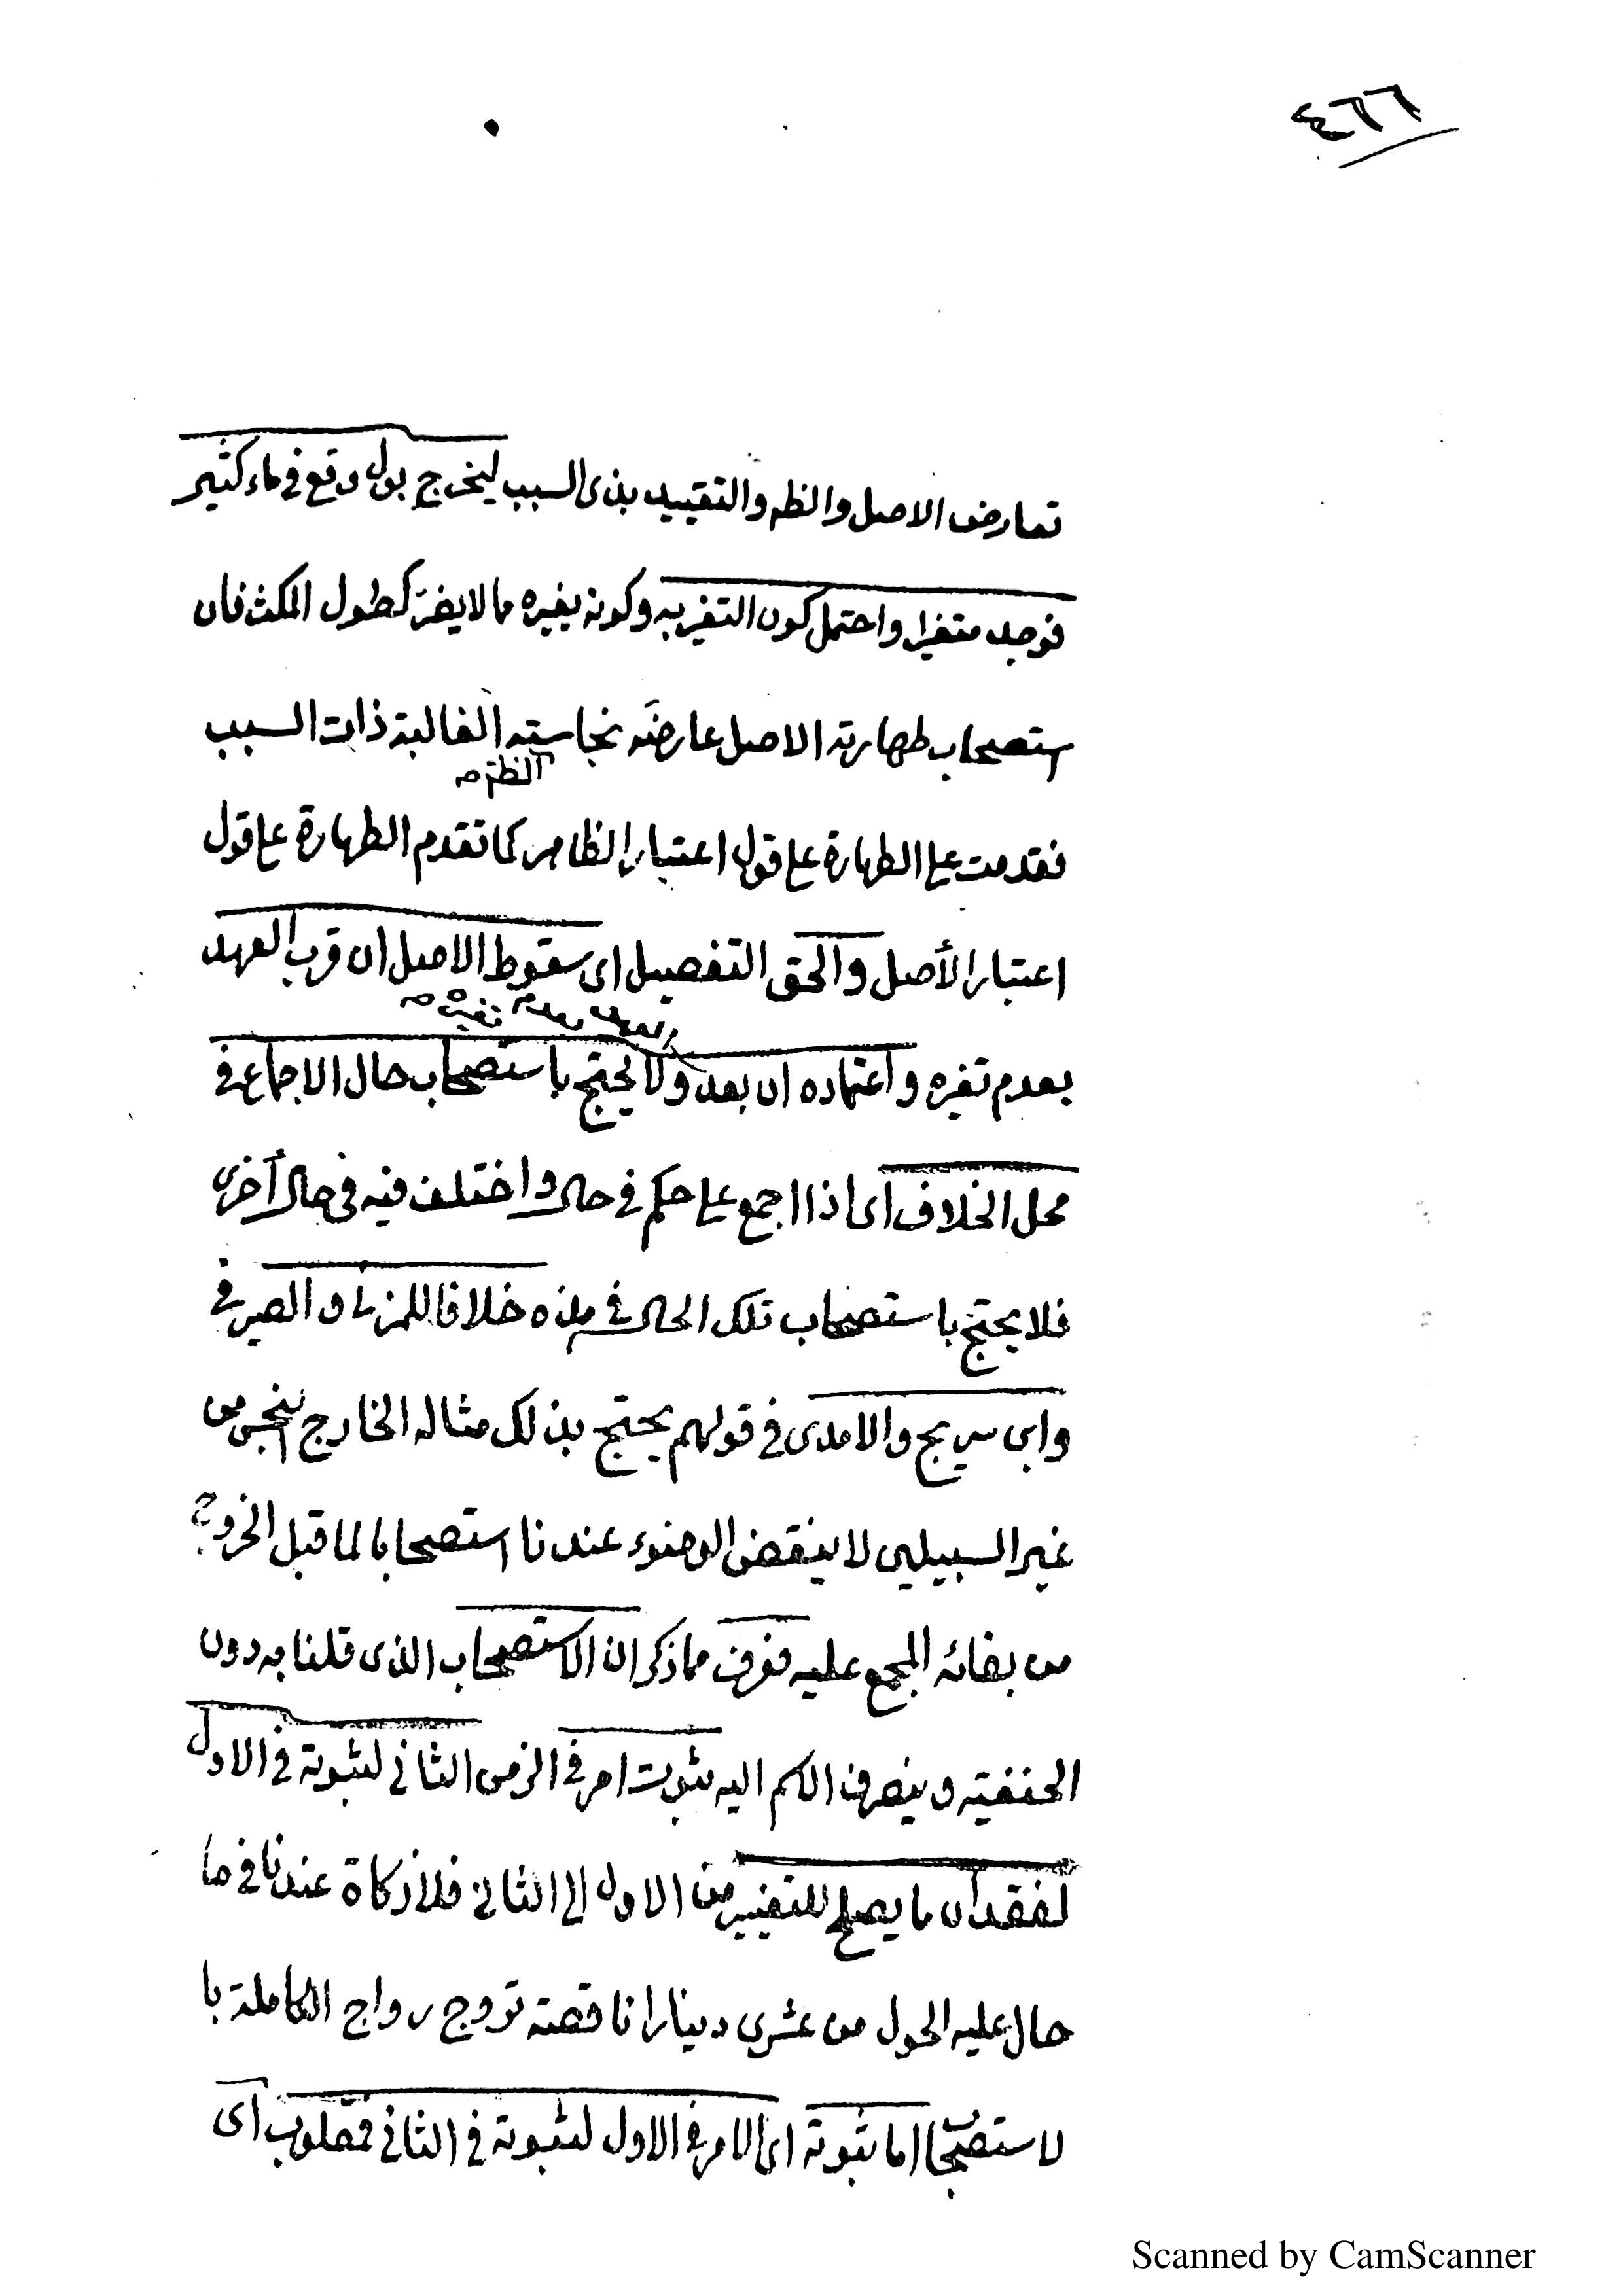 ٤٦٦
تعارض الاصل والظه والتقييد بذى السبب ليخرج بول وقع فى ماء كثير
فوجد متغيرا واحتمل كون التغير به وكونه بغيره مما لا يضرّ كطول المكث فان
استصحاب طهارته الاصل عارضَه نجاسته الغالبة ذات السبب
الظاهرة
فقدمت على الطهارة على قول اعتبار الظاهر كما تقدم الطهارة على قول
اعتبار الأصل والحق التفصيل اى سقوط الاصل ان قرب العهد
العهد بعدم تغيره صه
بعدم تغيره واعتماده ان بعد ولا يحتج باستصحاب حال الاجماع فى
محل الخلاف اى اذا اجمع على حكم فى حال واختلف فيه فى حال أخرى
فلا يحتج باستصحاب تلك الحال فى هذه خلافا للمزنى والصيرفى
وابى سريج والامدى فى قولهم يحتج بذلك مثاله الخارج النجس من
غير السبيلين لا ينقض الوضوء عندنا استصحابا لما قبل الخروج
من بقائه المجمع عليه فعرف مما ذكر ان الاستصحاب الذى قلنا به دون
الحنفية وينصرف الاسم اليه ثبوت امر فى الزمن الثانى لثبوته فى الاول
لفقدان ما يصلح للتغيير من الاول الى الثانى فلا زكاة عندنا فى ما
حال عليه الحول من عشرى دينارا ناقصة تروج رواج الكاملة با
لاستصحاب اما ثبوته اى الامر فى الاول لثبوته فى الثانى فمقلوب اى
Scanned by CamScanner